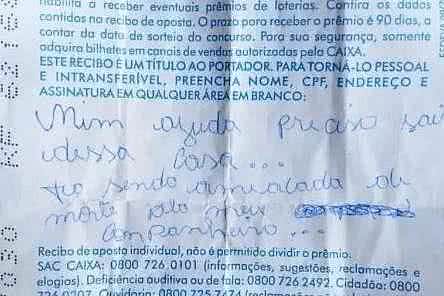 habilita a receber eventuais prêmios de loterias. Confira os dados
contidos no recibo de aposta. O prazo para receber o prêmio é 90 dias, a
contar da data de sorteio do concurso. Para sua segurança, somente
adquira bilhetes em canais de vendas autorizadas pela CAIXA.
ESTE RECIBO É UM TÍTULO AO PORTADOR. PARA TORNÁ-LO PESSOAL
E INTRANSFERÍVEL, PREENCHA NOME, CPF, ENDEREÇO E
ASSINATURA EM QUALQUER ÁREA EM BRANCO:
Mim ajuda preciso sai
dessa Casa...
to sendo ameacada de
morte pelo meu
Companheiro...
Recibo de aposta individual, não é permitido dividir o prêmio.
SAC CAIXA: 0800 726 0101 (informações, sugestões, reclamações e
elogios). Deficiência auditiva ou de fala: 0800 726 2492. Cidadão: 0800
726 0207. Ouvidoria: 0800 725 7474 (reclamações